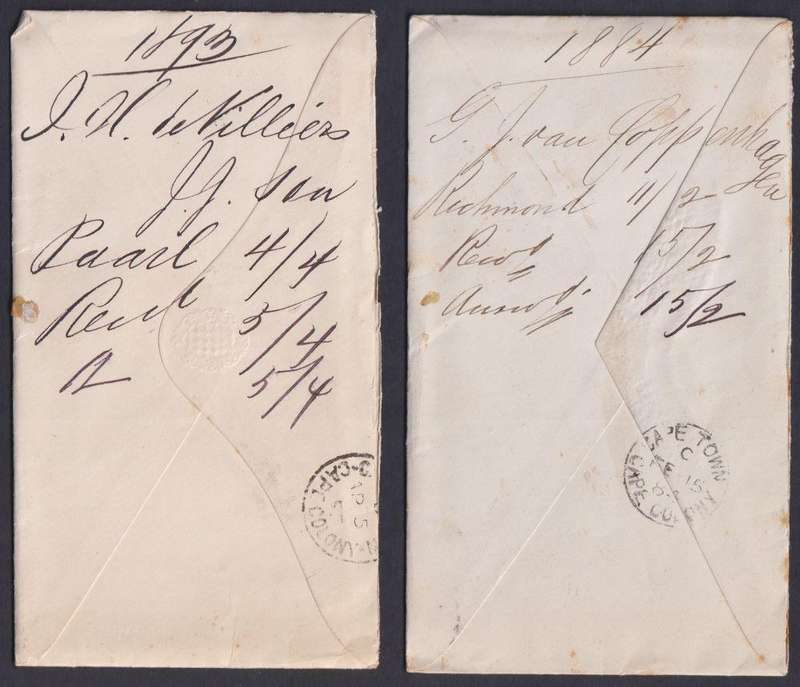 1893
J. H. de Villiers
J. J. son
Paarl 4/4
Recd 5/4
A 5/4
CAPE COLONY
AP 5
1884
G. J. van Coppenhagen
Richmond 11/2
Recd 15/2
Answd 15/2
CAPE TOWN
C
FE 15
CAPE COLONY